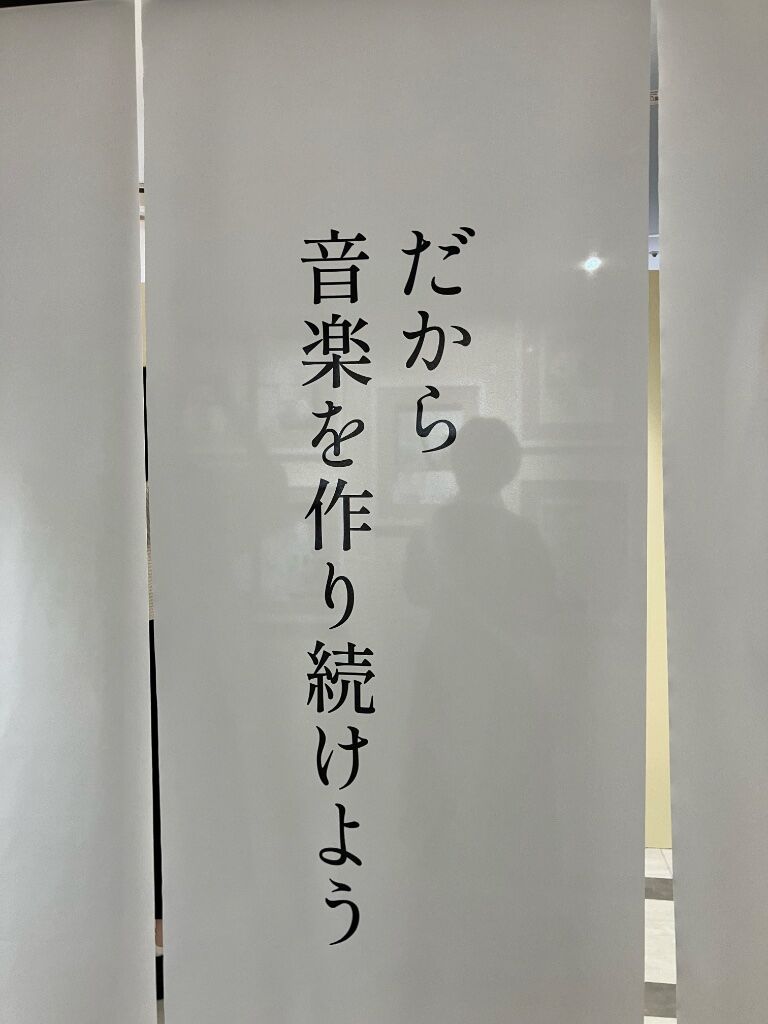 だから
音楽を作り続けよう